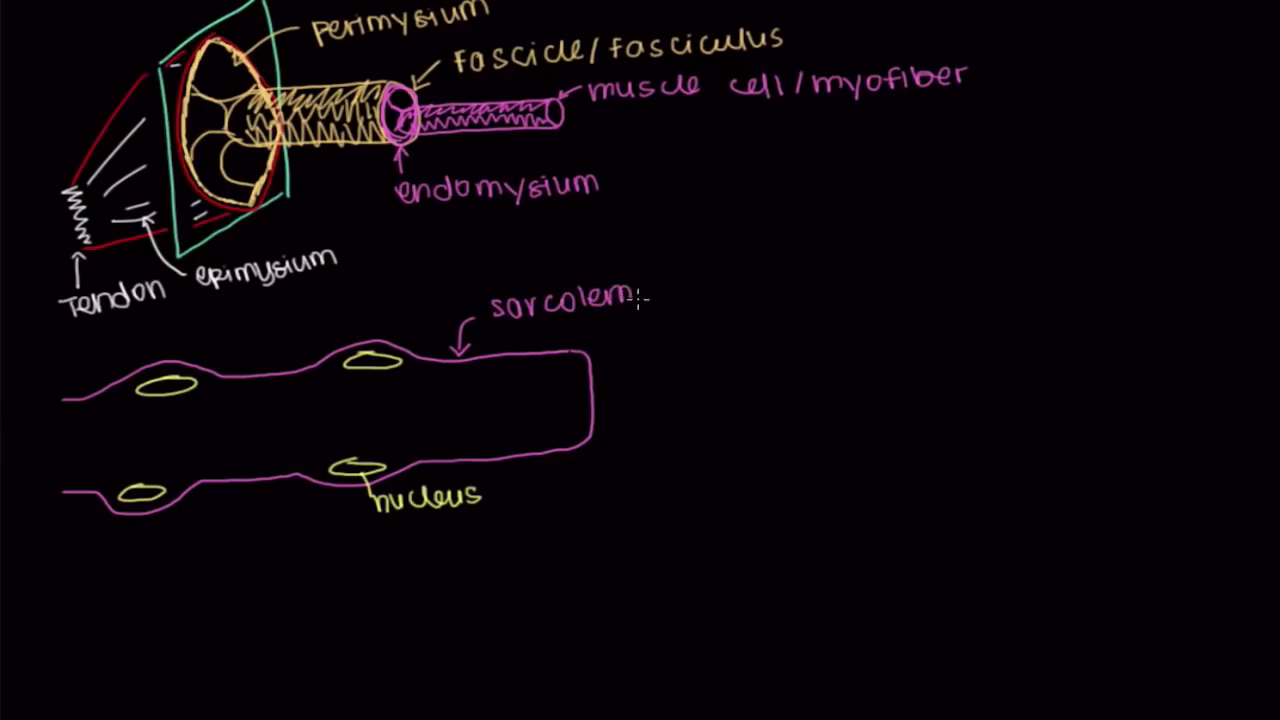 perimysium
fascicle/fasciculus
muscle cell/myofiber
endomysium
epimysium
Tendon
sarcolem
nucleus